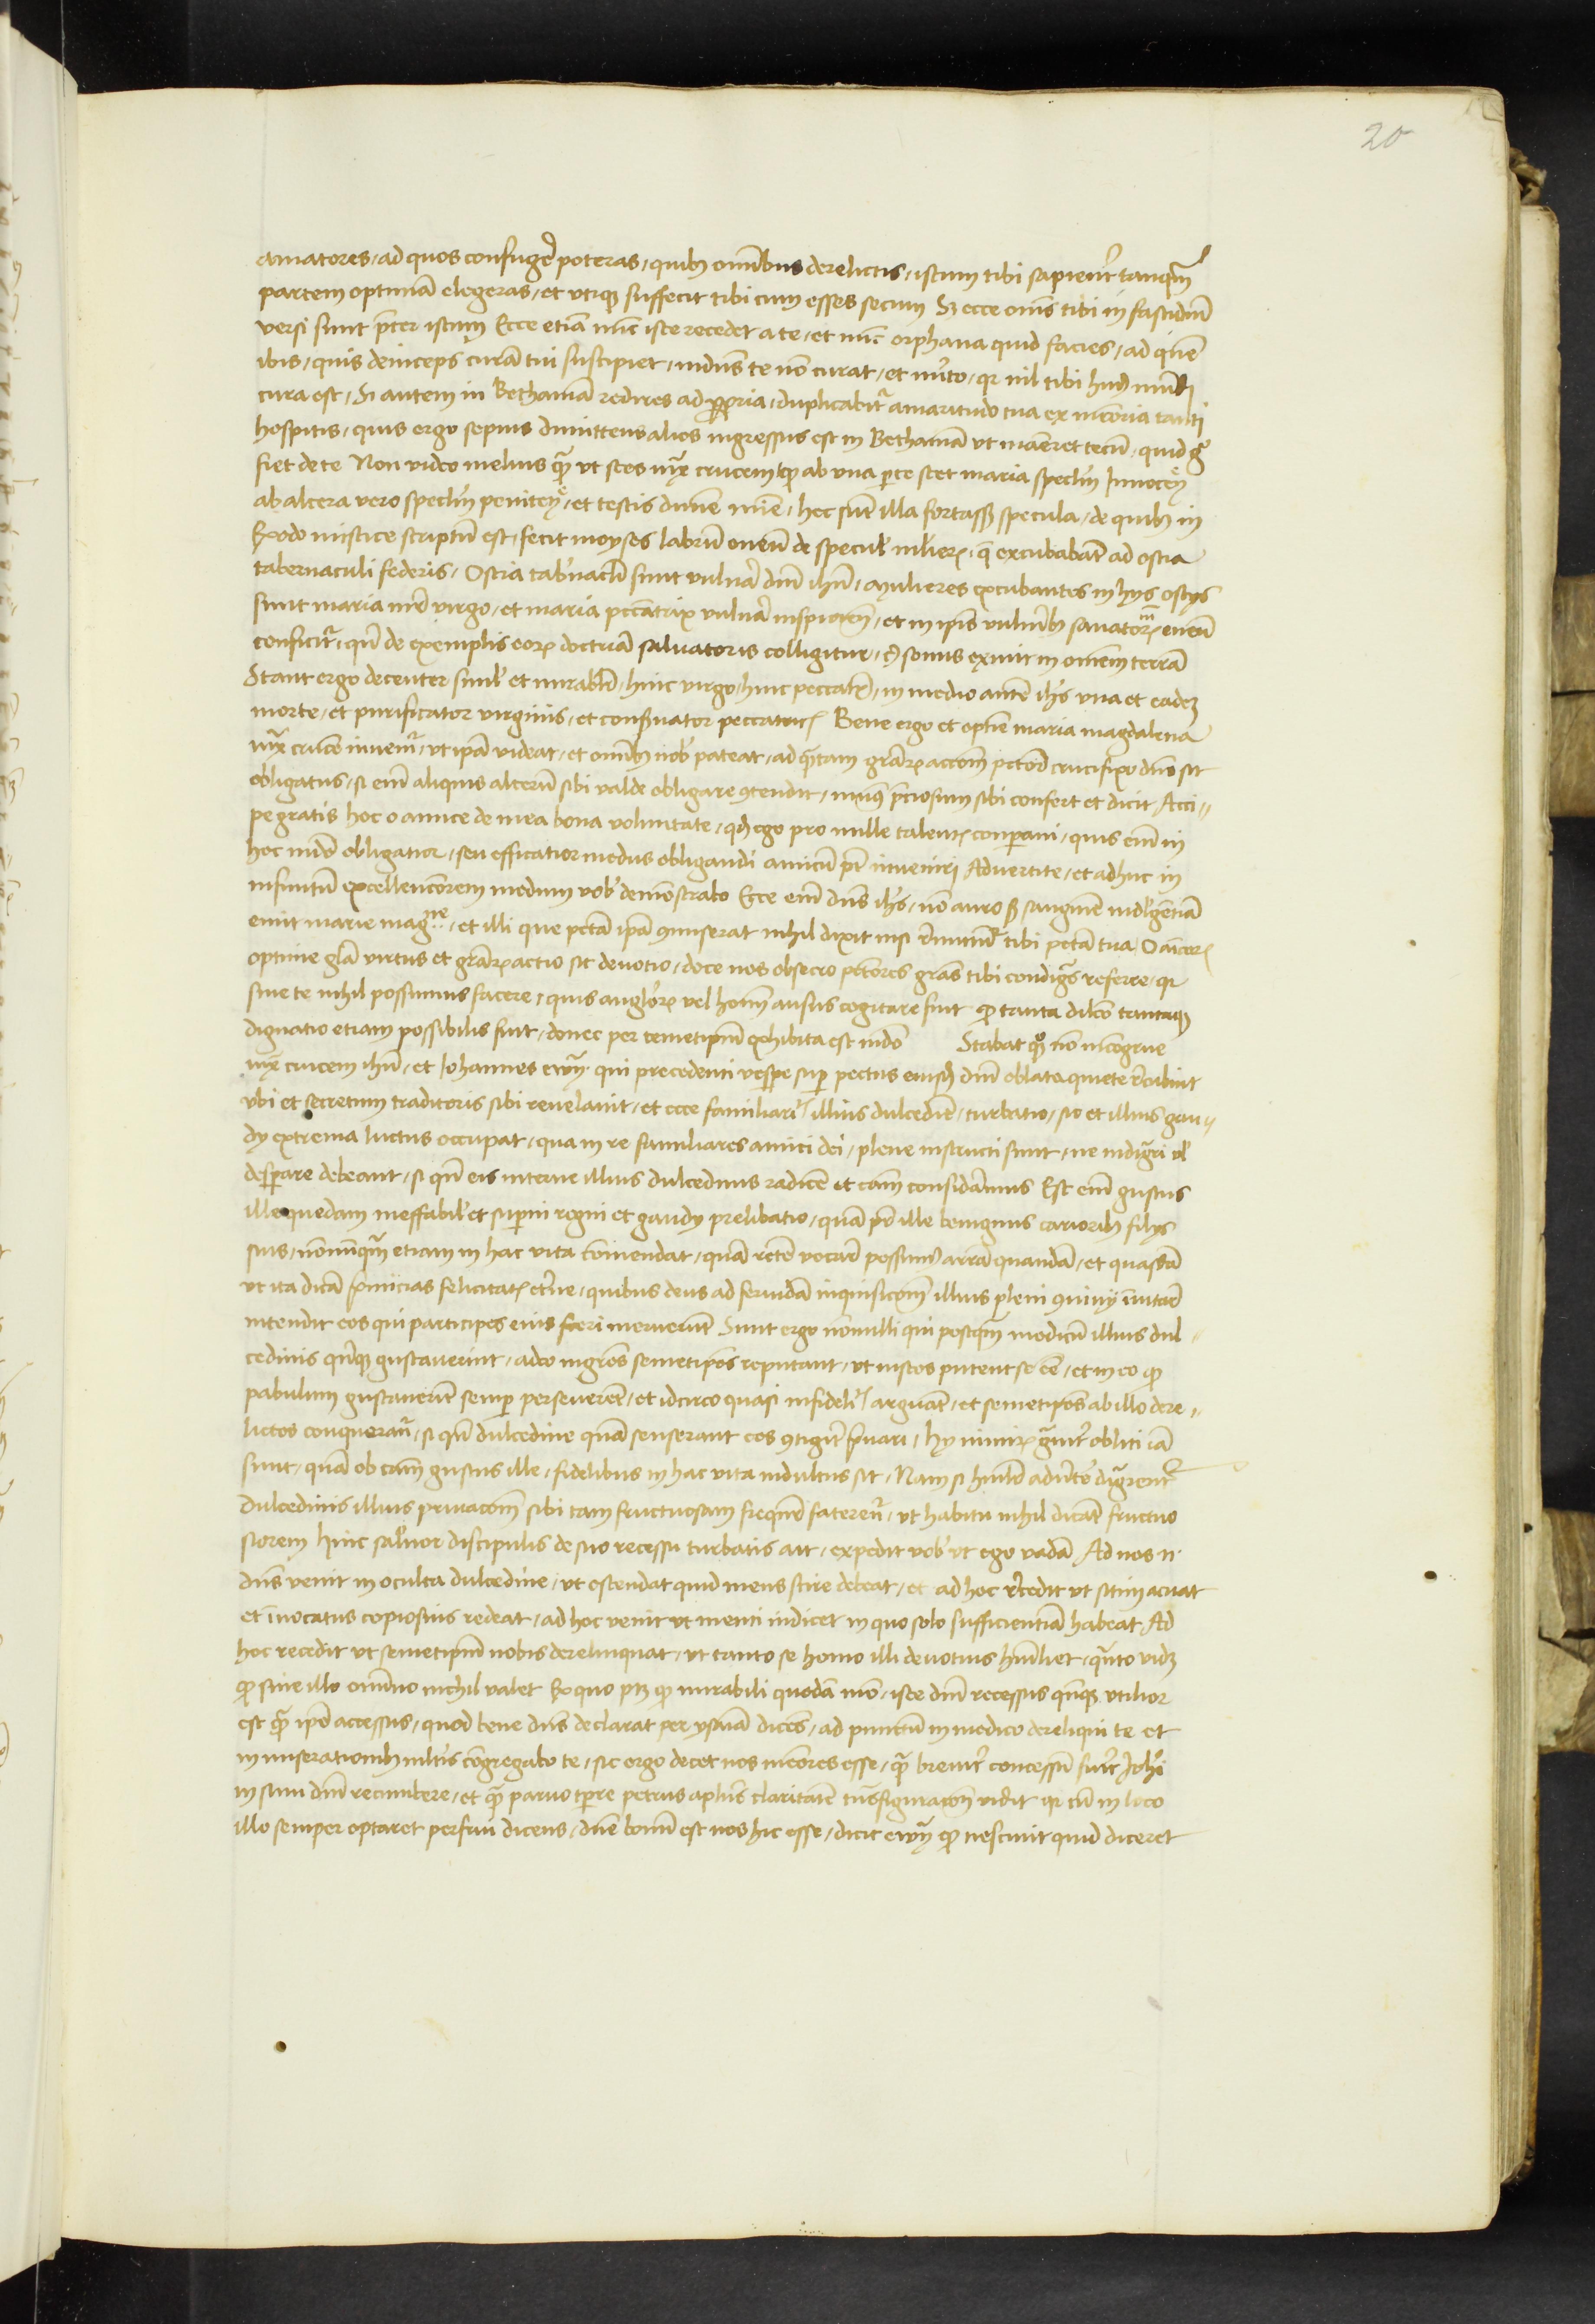 20
amatores / ad quos confuge᷑ poteras / quibꝫ omībus derelictis / istum tibi sapient᷑ tanqᷓm
partem optimā elegeras / et vtiqꝫ suffecit tibi cum esses secum Sꝫ ecce oms̄ tibi in fastidiū
versi sunt p̄ter istum Ecce etiā nūc iste recedet a te / et nūc orphana quid facies / ad quē
ibis / quis deinceps curā tui suscipiet / mūdus te nō curat / et mito / qꝛ nil tibi huiꝰ mūdi
cura est / Si autem in Bethaniā redires ad ꝓpria / duplicabit᷑ amaritudo tua ex mēoria tanti
hospitis / quis ergo sepius dimittens alios ingressus est in Bethaniā vt maneret tecū / quid gͦ
fiet de te Non video melius qᷓ vt stes iuxͣ crucem / ꝙ ab vna ꝑte stet maria speclm̄ Innocen̄
ab altera vero speclm̄ peniten̄ / et testis diuine mīe / hec sūt illa fortassꝭ specula / de quibꝫ in
Exodo mistice scriptū est / fecit moyses labrū eneū de speculꝭ mlieꝝ / que excubabāt ad ostia
tabernaculi federis / Ostia tabnaclī sunt vulnera dnī ihū / Mulieres excubantes in hijs ostijs
sunt maria mr̄ virgo / et maria pccatrix vulnera inspicien̄ / et in ipīs vulneribꝫ saluatoꝝ eneū
conficit᷑ / qn̄ de exemplis eoꝝ doctrinā saluatoris colligitur / cꝰ sonus exiuit in omnem terrā
Stant ergo decenter simul et mirabilr̄ / hinc virgo / hinc peccatͥx / in medio autē ihs̄ vna et eadeꝫ
morte / et purificator virginis / et conseruator peccatricꝭ Bene ergo et optīe maria magdalena
iuxͣ crucē inuenit᷑ / vt ipā videat / et omībꝫ nobꝭ pateat / ad quātam gratiaꝝ acciōm pctor̄ crucifixo dnō sit
obligatus / si enī aliquis alterū sibi valde obligare ꝯtendit / munꝰ p̄ciosum sibi confert et dicit Acci⸗
pe gratis hoc o amice de mea bona voluntate / qđ ego pro mille talentꝭ conparaui / quis enī in
hoc mūdo obligatior / seu efficatior modus obligandi amicū pt̄ inueniri Aduertite / et adhuc in
infinitū excellenciorem modum vobꝭ demōstrabo Ecce enī dns̄ ihs̄ / nō auro sꝫ sanguine indulgētiā
emit marie magne / et illi que pctā ipā ꝯmiserat nihil dixit nisi remittunt᷑ tibi pctā tua / O aīcoꝝ
optime glā virtus et gratiaꝝ actio sit deuotio / doce nos obsecro pctores gratias tibi condignas referre / qꝛ
sine te nihil possumus facere / quis angeloꝝ vel hominū ausus cogitare fuit ꝙ tanta dilcō tantaqꝫ
dignatio etiam possibilis fuit / donec per temetipm̄ exhibita est mūdo Stabat quoqꝫ nō incōgrue
iuxͣ crucem ihū / et Iohannes ewāg qui precedenti vespere suꝑ pectus eiusdē dnī oblata quiete recubuit
vbi et secretum traditoris sibi reuelauit / et ecce familiaris illius dulcedinē / turbatio / sic et illius gau⸗
dij extrema luctus occupat / qua in re familiares amici dei / plene instructi sunt / ne indignari vl
desperare debeant / si qn̄ eis interne illius dulcedinis radicē et cām consideramus Est enī gustus
ille quedam ineffabilꝭ et superni regni et gaudij prelibatio / quā pr̄ ille benignus carioribꝫ filijs
suis / nōnunqᷓm etiam in hac vita cōmendat / quā recte vocare possumꝰ arrā quandā / et quasdā
vt ita dicā primicias felicitatꝭ eterne / quibus deus ad feruidā inquisicōnem illius pleni ꝯuiuij inuitare
intendit eos qui participes eius fieri meruerūt Sunt ergo nōnulli qui postqᷓm modicū illius dul⸗
cedinis quicqꝫ gustauerint / adeo ingratos semetipsos reputant / vt iustos putent se eē / et in eo ꝙ
pabulum gustauerūt semper perseuerent / et idcirco quasi infidelꝭ arguāt / et semetipos ab illo dere⸗
lictos conquerant᷑ / si qn̄ dulcedine quā senserant eos ꝯtigerit priuari / hij nimiꝝ grauit᷑ obliti iā
sunt / quā ob cām gustus ille / fidelibus in hac vita indultus sit / Nam si humilr̄ aduertere dignarent᷑
dulcedinis illius priuacōnem sibi tam fructuosam frequent᷑ faterent᷑ / vt habitu nihil dicāt fructuo
siorem hinc saluator discipulis de suo recessu turbatis ait / expedit vobꝭ vt ego vadā Ad nos n.
dns̄ venit in oculta dulcedine / vt ostendat quid mens scire debeat / et ad hoc recedit vt sitim acuat
et inuocatus copiosius redeat / ad hoc venit vt menti indicet in quo solo sufficientiā habeat Ad
hoc recedit vt semetipm̄ nobis derelinquat / vt tanto se homo illi deuotius humiliet / quanto videꝫ
ꝙ sine illo omnino nichil valet Ex quo ptꝫ ꝙ mirabili quodā modo / iste dnī recessus quicqꝫ vtilior
est qᷓ ipē accessus / quod bene dns̄ declarat per ysaiā dicēs / ad punctum in modico dereliqui te et
in miserationibꝫ mltꝭ cōgregabo te / sic ergo decet nos memores esse / qᷓ breuit᷑ concessū fuerit Iohi
in sinu dnī recumbere / et qᷓ paruo tꝑre petrus aplūs claritatē trāsfiguraciōnis vidit qꝛ cū in loco
illo semper optaret perfrui dicens / dnē bonū est nos hic esse / dicit ewāg ꝙ nesciuit quid diceret